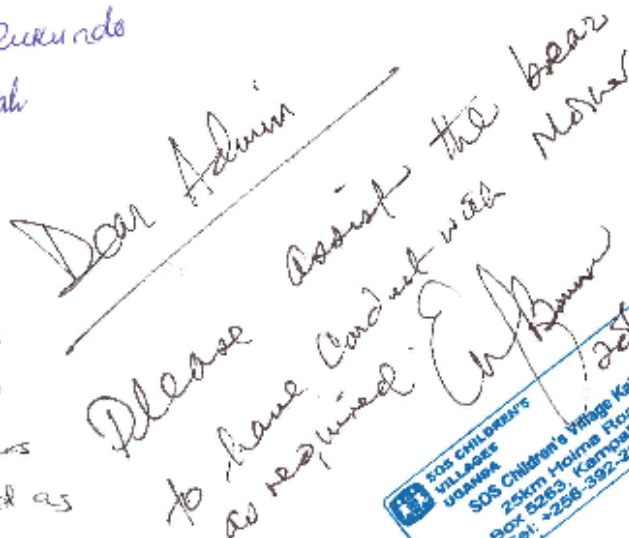 Rukundo
Dear Admin
Please assist the bear
to have Conduct with Mother
as required.
as
SOS CHILDREN'S
VILLAGES
UGANDA
SOS Children's Village Ka
25km Hoima Roa
Box 5263, Kampal
Tel: +256-392-2